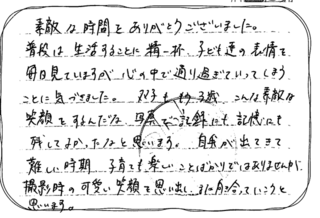 素敵な時間をありがとうございました。
普段は生活することに精一杯、子ども達の表情を
毎日見ているのが心の中で通り過ぎていってしまう
ことに気づきました。双子ももう3歳、こんな素敵な
笑顔をするんだな、写真で記録にも、記憶にも
残してよかったなと思います。自我が出てきて
難しい時期、子育ても楽しいことばかりではありませんが
撮影時の可愛い笑顔を思い出し、また向き合っていこうと
思います。